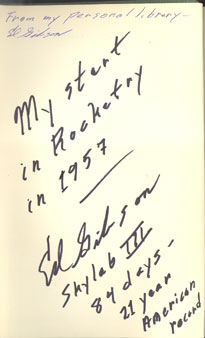 From my personal library -
Ed Gibson
My start
in Rocketry
in 1957
Ed Gibson
Skylab III
84 days -
21 year
American
record